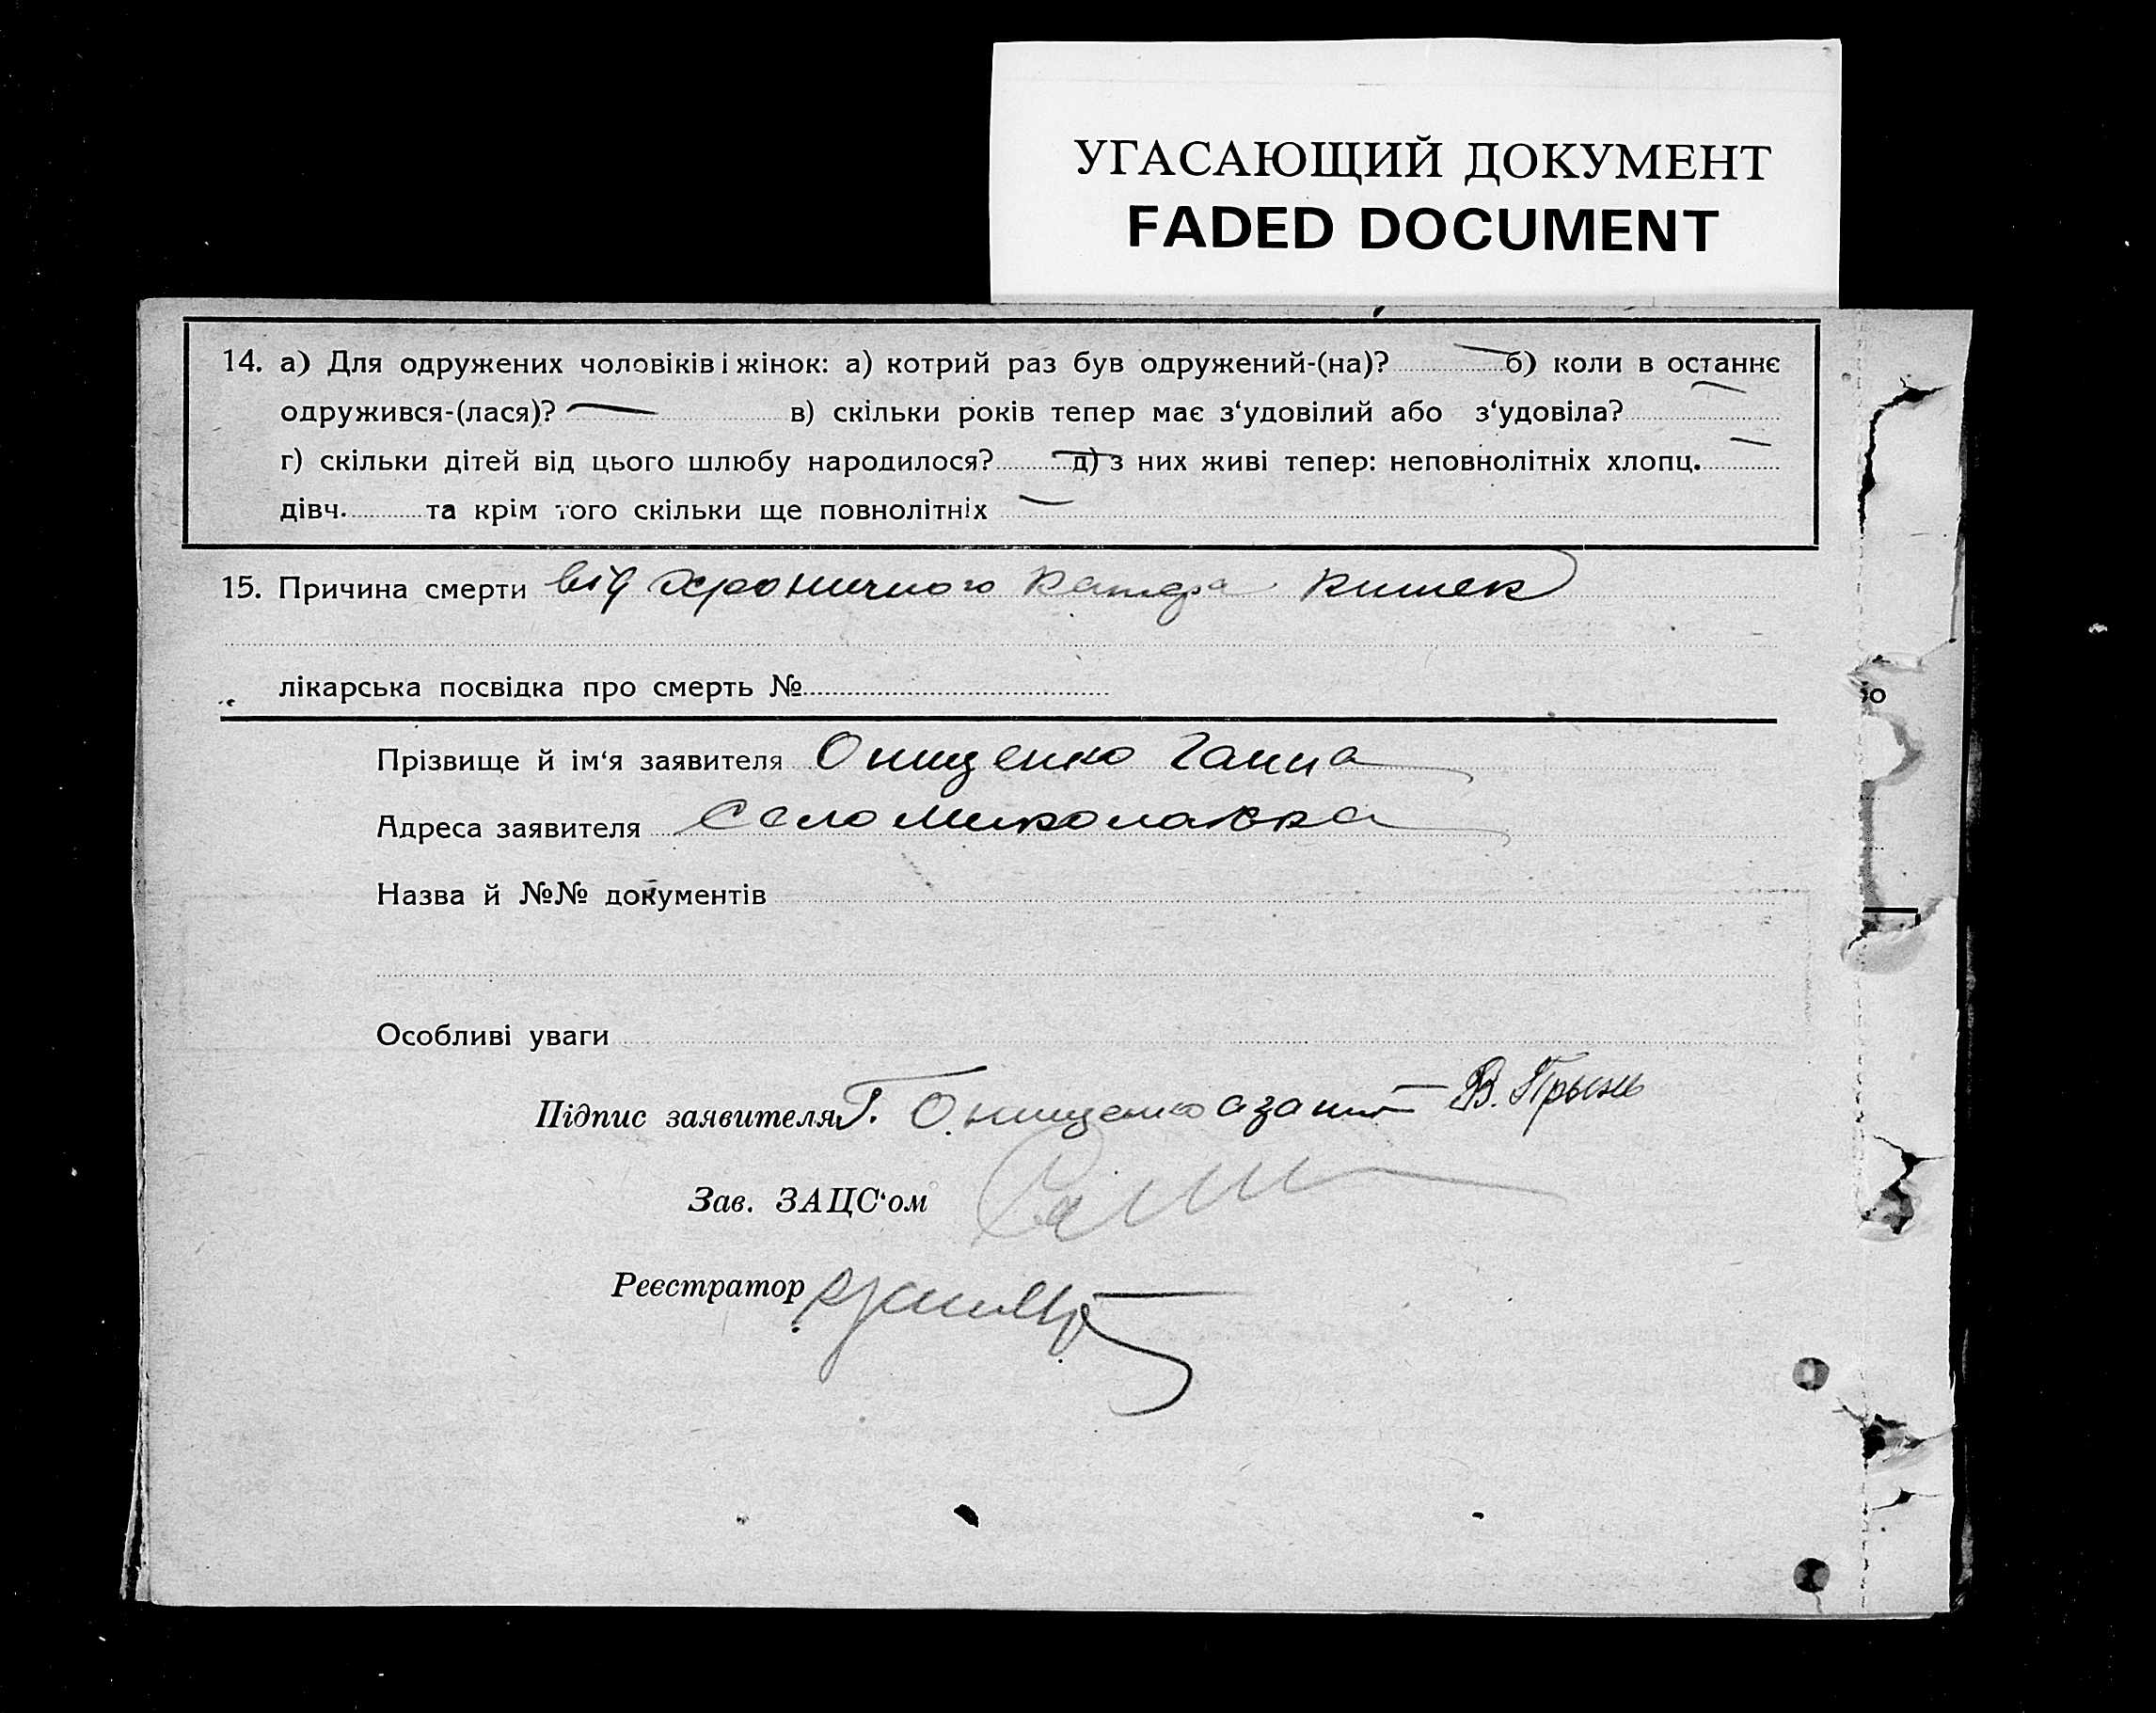 УГАСАЮЩИЙ ДОКУМЕНТ
FADED DOCUMENT
14. а) Для одружених чоловіків і жінок: а) котрий раз був одружений-(на)? б) коли в останнє
одружився-(лася)? в) скільки років тепер має з‘удовілий або з‘удовіла?
г) скільки дітей від цього шлюбу народилося? д) з них живі тепер: неповнолітніх хлопц.
дівч. та крім того скільки ще повнолітніх
15. Причина смерти від хроничного катара кишек
лікарська посвідка про смерть №
Прізвище й ім‘я заявителя Онищенко Ганна
Адреса заявителя Село Миколаївка
Назва й №№ документів
Особливі уваги
Підпис заявителя Г. Онищенко а за В.
Зав. ЗАЦС‘ом
Реєстратор